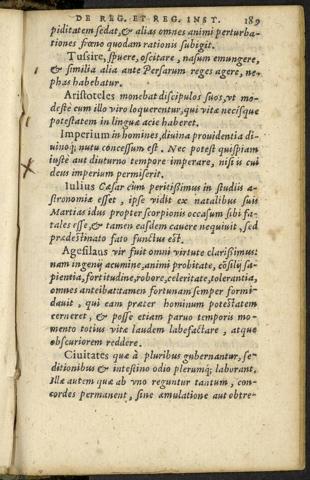 DE REG. ET REG. INST. 189
piditatem sedat, & alias omnes animi perturba-
tiones frœno quodam rationis subigit.
Tussire, spuere, oscitare, nasum emungere,
& similia alia ante Persarum reges agere, ne-
phas habebatur.
Aristoteles monebat discipulos suos, vt mo-
destè cum illo viro loquerentur, qui vitæ necisque
potestatem in linguæ acie haberet.
Imperium in homines, diuina prouidentia di-
uinoq; nutu concessum est. Nec potest quispiam
iustè aut diuturno tempore imperare, nisi is cui
deus imperium permiserit.
Iulius Cæsar cùm peritißimus in studiis a-
stronomiæ esset, ipse vidit ex natalibus suis
Martias idus propter scorpionis occasum sibi fa-
tales esse, & tamen easdem cauere nequiuit, sed
prædestinato fato functus est.
Agesilaus vir fuit omni virtute clarißimus:
nam ingenij acumine, animi probitate, cōsilij sa-
pientia, fortitudine, robore, celeritate, tolerantia,
omnes anteibat: tamen fortunam semper formi-
dauit, qui eam præter hominum potestatem
cerneret, & posse etiam paruo temporis mo-
mento totius vitæ laudem labefactare, atque
obscuriorem reddere.
Ciuitates quæ à pluribus gubernantur, se-
ditionibus & intestino odio plerumq; laborant,
Illæ autem quæ ab vno reguntur tantum, con-
cordes permanent, sine æmulatione aut obtre-